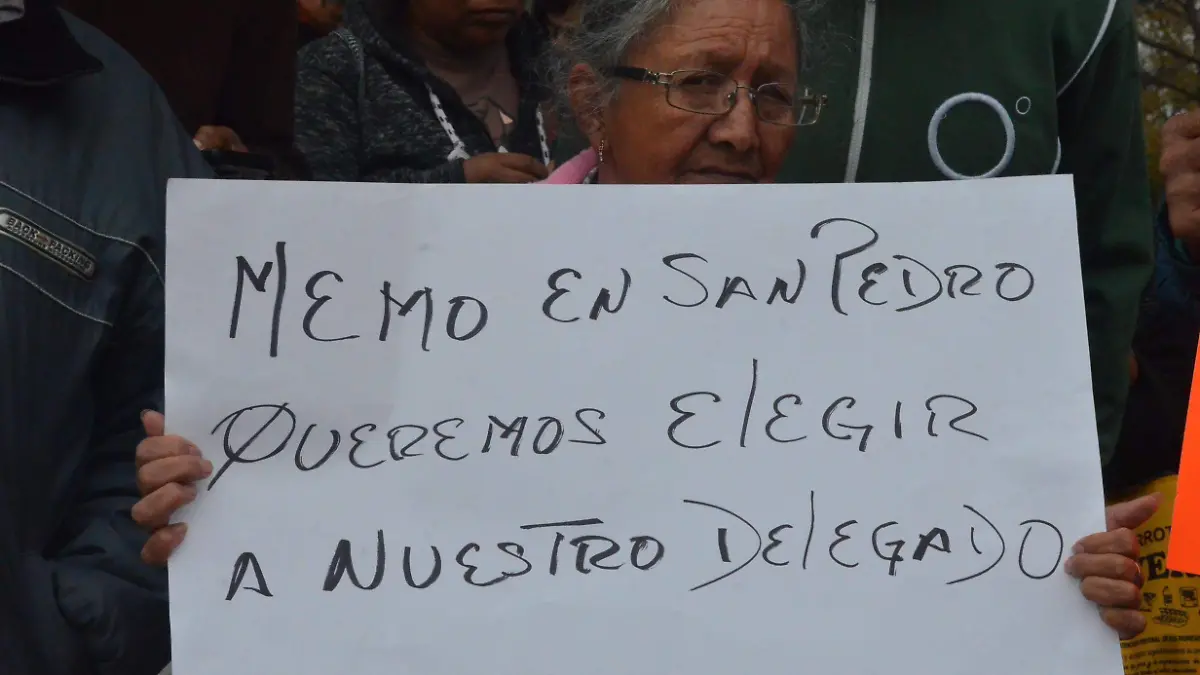 BACK PACKING
MEMO EN SAN PEDRO
QUEREMOS ELEGIR
A NUESTRO DELEGADO